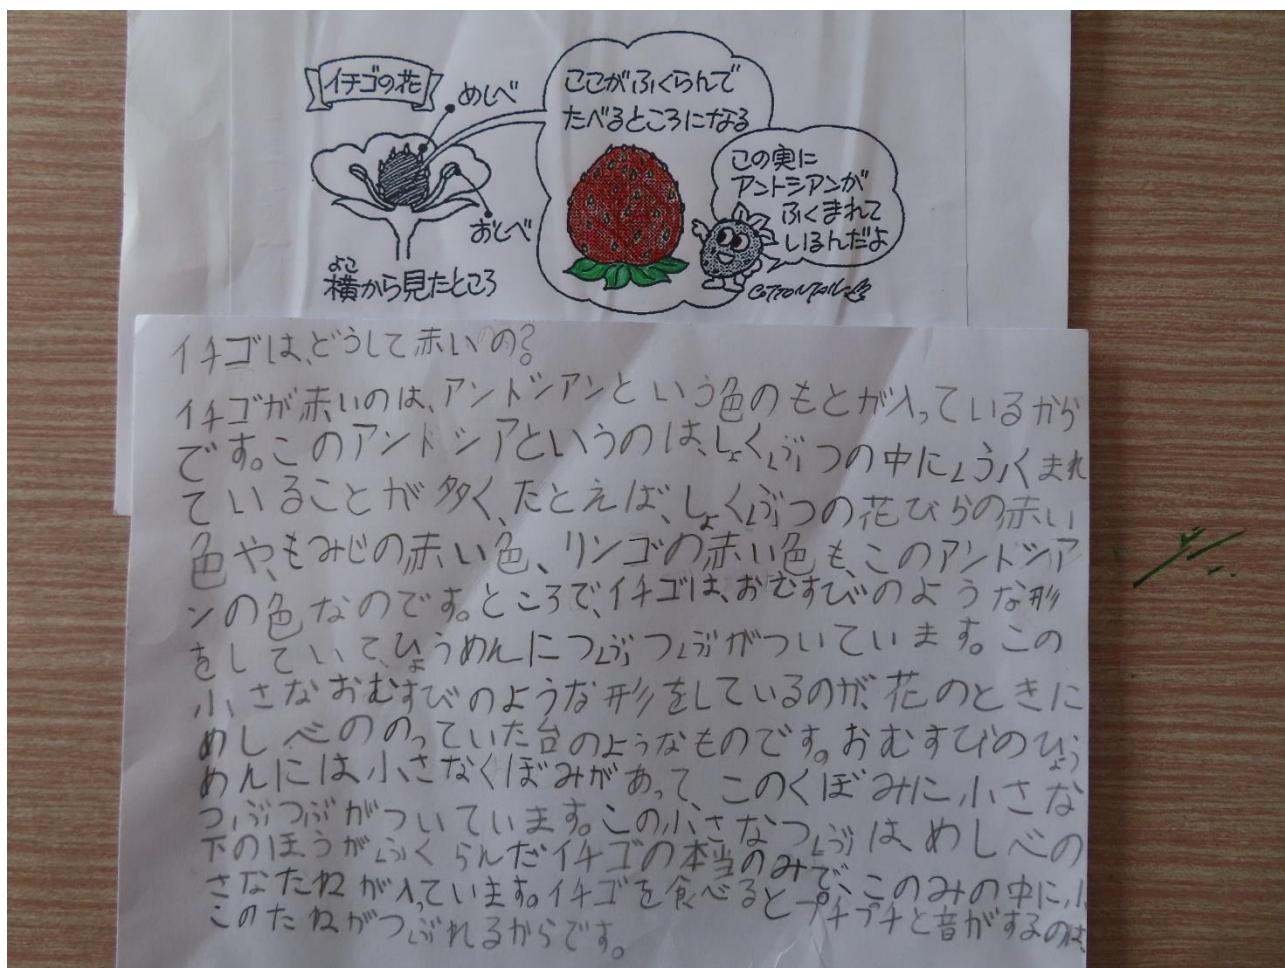 イチゴの花
めしべ
おしべ
よこ
横から見たところ
ここがふくらんで
たべるところになる
この実に
アントシアンが
ふくまれて
いるんだよ
イチゴは、どうして赤いの?
イチゴが赤いのは、アンドシアンという色のもとが入っているから
です。このアンドシアというのは、しょくぶつの中にふくまれ
ていることが多く、たとえば、しょくぶつの花びらの赤い
色や、もみじの赤い色、リンゴの赤い色も、このアンドシア
ンの色なのです。ところで、イチゴは、おむすびのような形
をしていて、ひょうめんにつぶつぶがついています。この
小さなおむすびのような形をしているのが、花のときに
めしべののっていた台のようなものです。おむすびのひょう
めんには、小さなくぼみがあって、このくぼみに、小さな
つぶつぶがついています。この小さなつぶは、めしべの
下のほうがふくらんだイチゴの本当のみで、このみの中に、小
さなたねが入っています。イチゴを食べるとプチプチと音がするのは、
このたねがつぶれるからです。